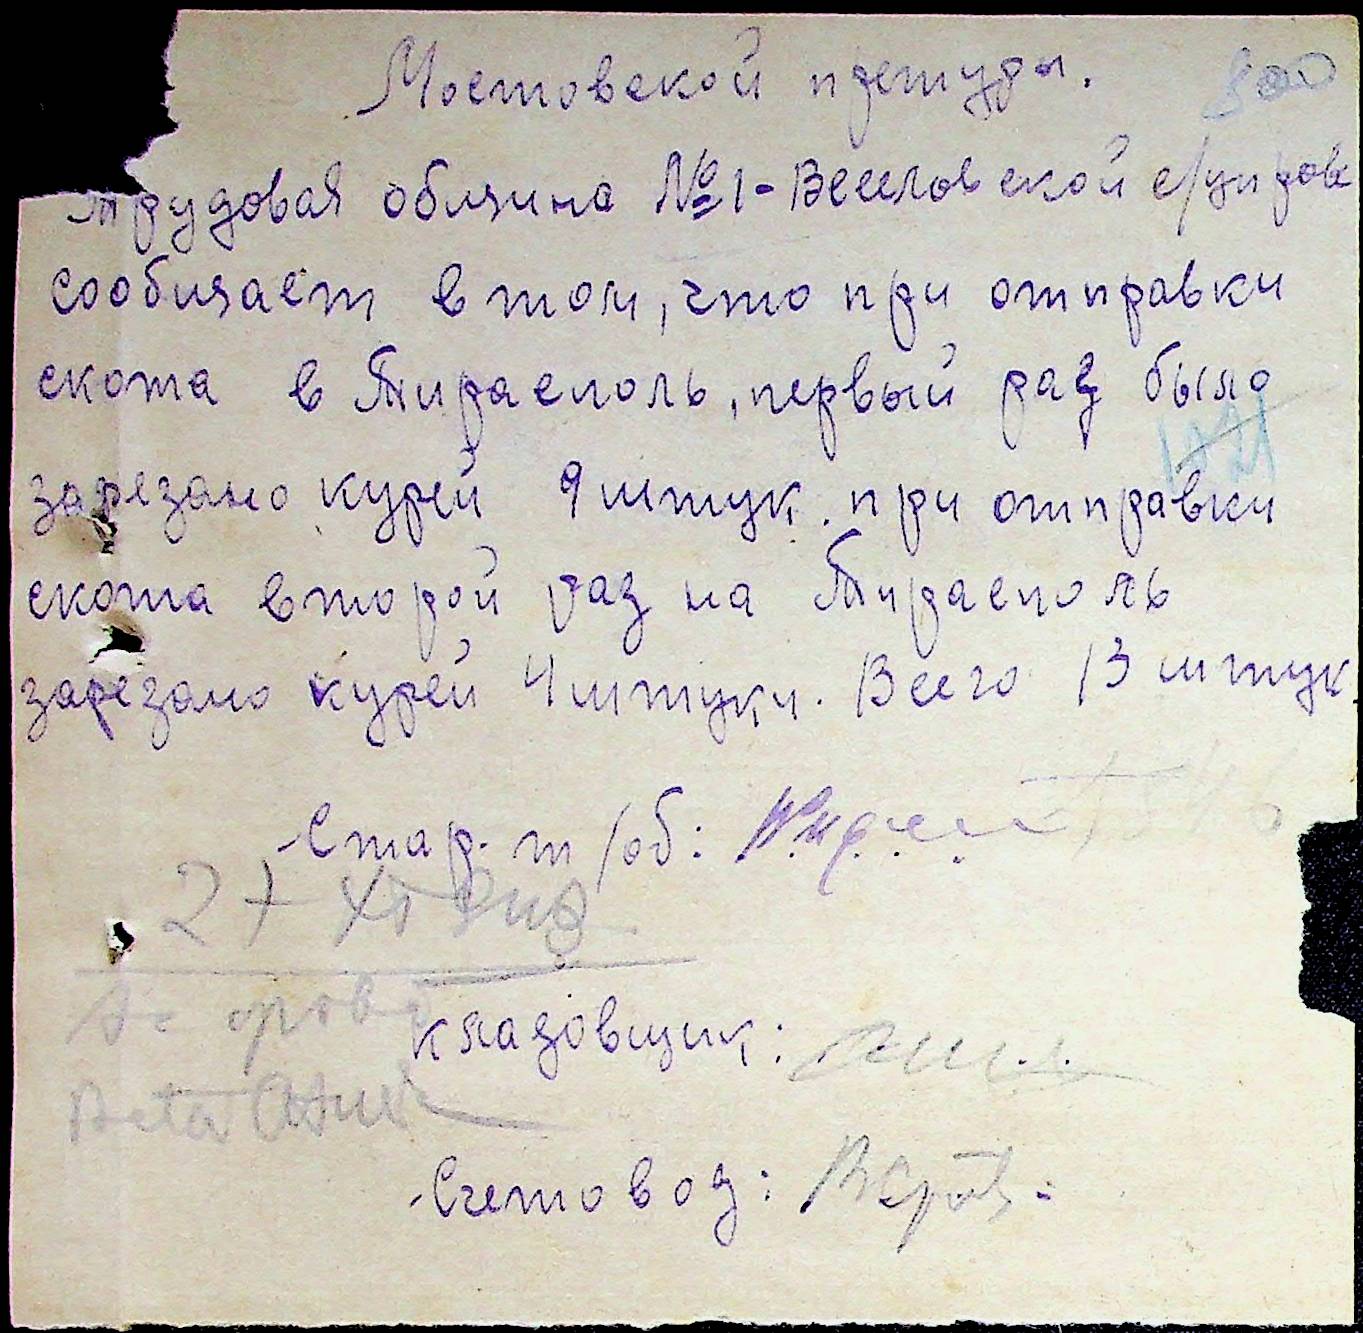 Мостовской претуры.
800
трудовая община №1-Веселовской с/управ
сообщает в том, что при отправки
скота в Тирасполь, первый раз было
зарезано курей 9 штук. при отправки
скота второй раз на Тирасполь
зарезано курей 4 штуки. Всего 13 штук.
-Стар. т/об:
кладовщик:
-Счетовод: